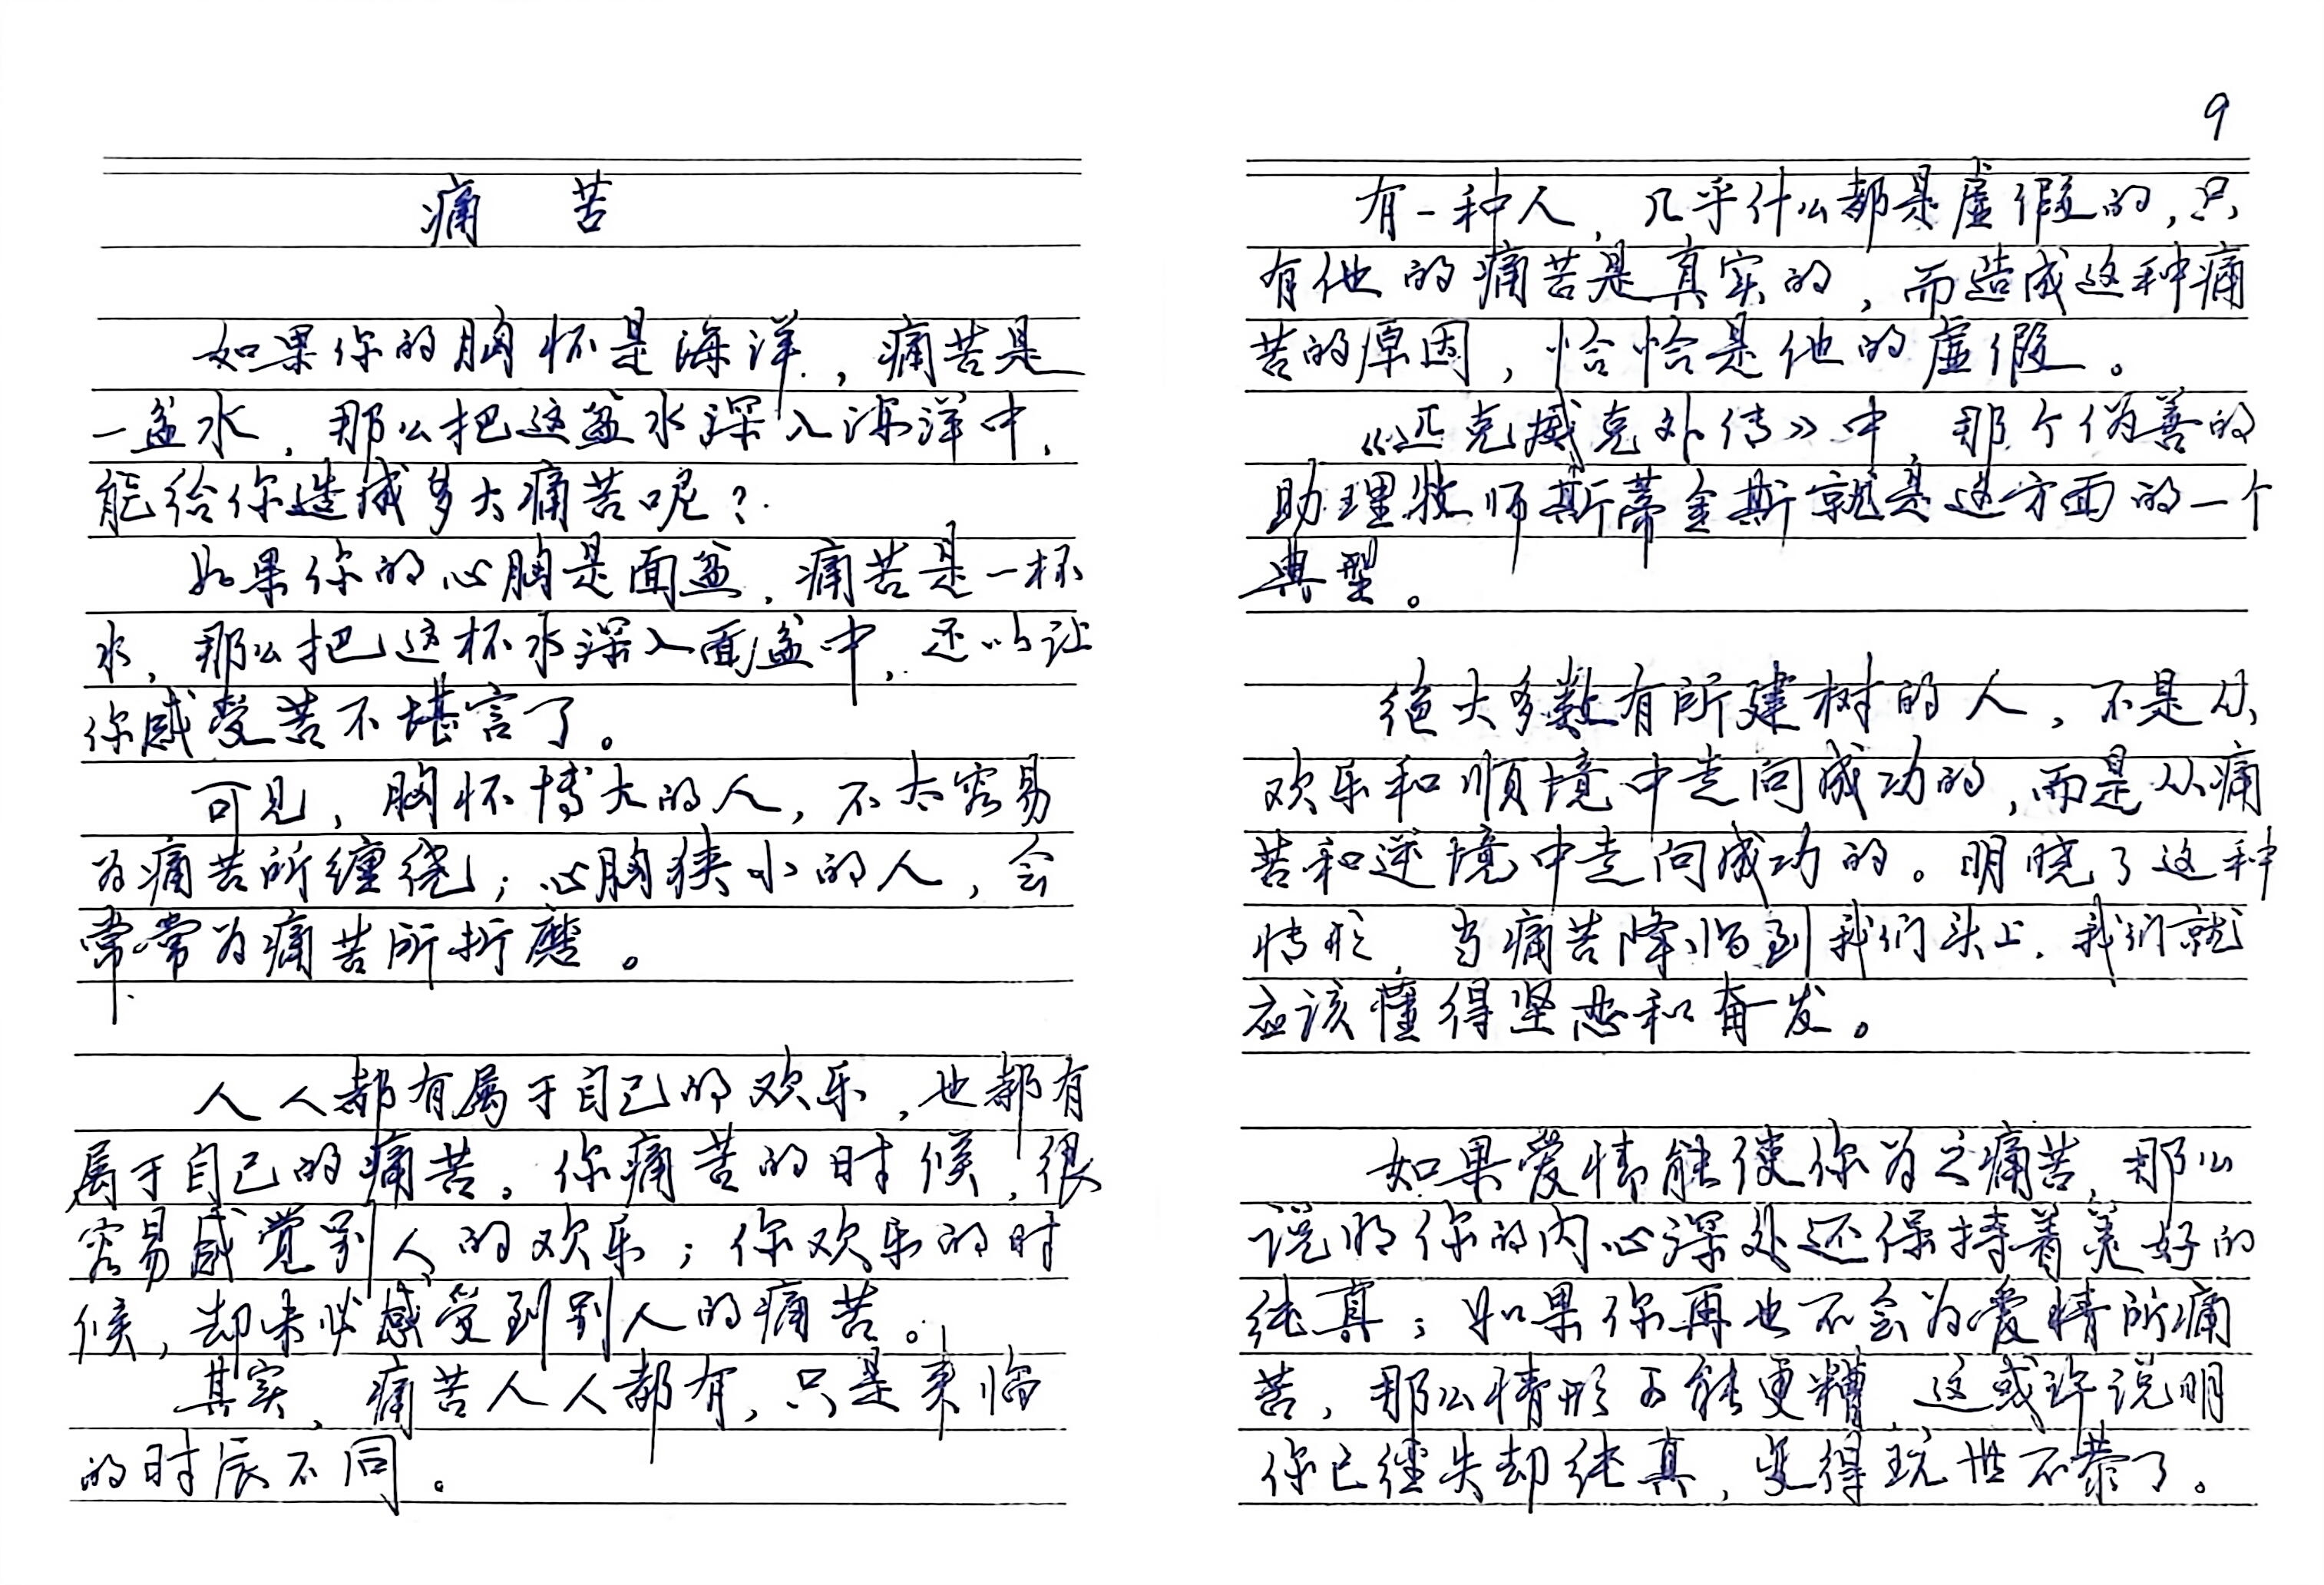 痛 苦
如果你的胸怀是海洋，痛苦是
一盆水，那么把这盆水深入海洋中，
能给你造成多大痛苦呢？
如果你的心胸是面盆，痛苦是一杯
水，那么把这杯水深入面盆中，还以让
你感受苦不堪言了。
可见，胸怀博大的人，不太容易
为痛苦所缠绕；心胸狭小的人，会
常常为痛苦所折磨。
人人都有属于自己的欢乐，也都有
属于自己的痛苦。你痛苦的时候，很
容易感觉别人的欢乐；你欢乐的时
候，却未必感受到别人的痛苦。
其实，痛苦人人都有，只是来临
的时辰不同。
9
有一种人，几乎什么都是虚假的，只
有他的痛苦是真实的，而造成这种痛
苦的原因，恰恰是他的虚假。
《匹克威克外传》中，那个伪善的
助理牧师斯蒂金斯就是这方面的一个
典型。
绝大多数有所建树的人，不是从
欢乐和顺境中走向成功的，而是从痛
苦和逆境中走向成功的。明晓了这种
情形，当痛苦降临到我们头上，我们就
应该懂得坚忍和奋发。
如果爱情能使你为之痛苦，那么
说明你的内心深处还保持着美好的
纯真；如果你再也不会为爱情所痛
苦，那么情形可能更糟，这或许说明
你已经失却纯真，变得玩世不恭了。